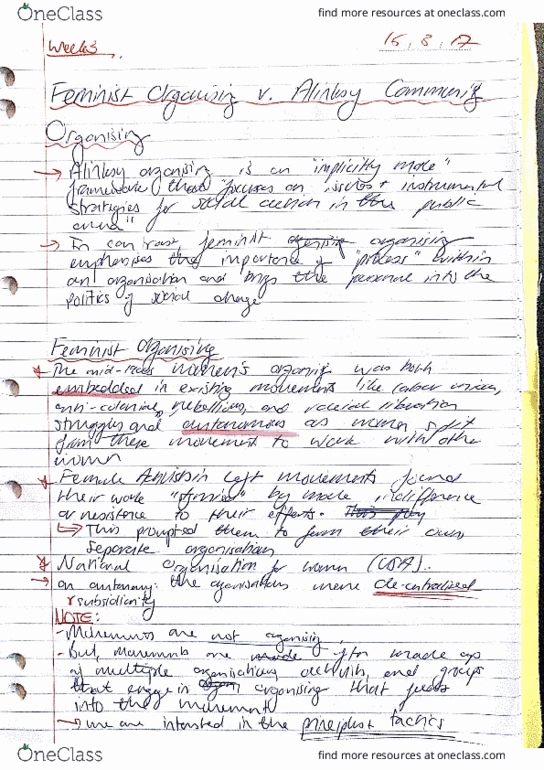 OneClass
find more resources at oneclass.com
Week 5
15, 3, 17
Feminist Organising v. Alinksy Community
Organising
→ Alinksy organising is an "implicitly male"
framework that "focuses on issues + instrumental
strategies for social action in the public
arena"
→ In contrast, feminist organising
emphasises the importance of "process" within
an organisation and brings the personal into the
politics of social change
Feminist Organising
The women's organising was both
embedded in existing movements like labour unions,
anti-colonial rebellions, and racial liberation
struggles and autonomous as women split
from these movement to work with other
women
Female Activists in left movements found
their work by male indifference
or resistance to their efforts.
↳ This prompted them to form their own
separate organisations
National Organisation for Women (USA).
→ on autonomy: the organisations were de-centralised
subsidiarity
NOTE:
- Movements are not organising.
- But, movements are often made up
of multiple organisations, and groups
that engage in organising that feeds
into the movement
→ we are interested in the tactics
OneClass
find more resources at oneclass.com